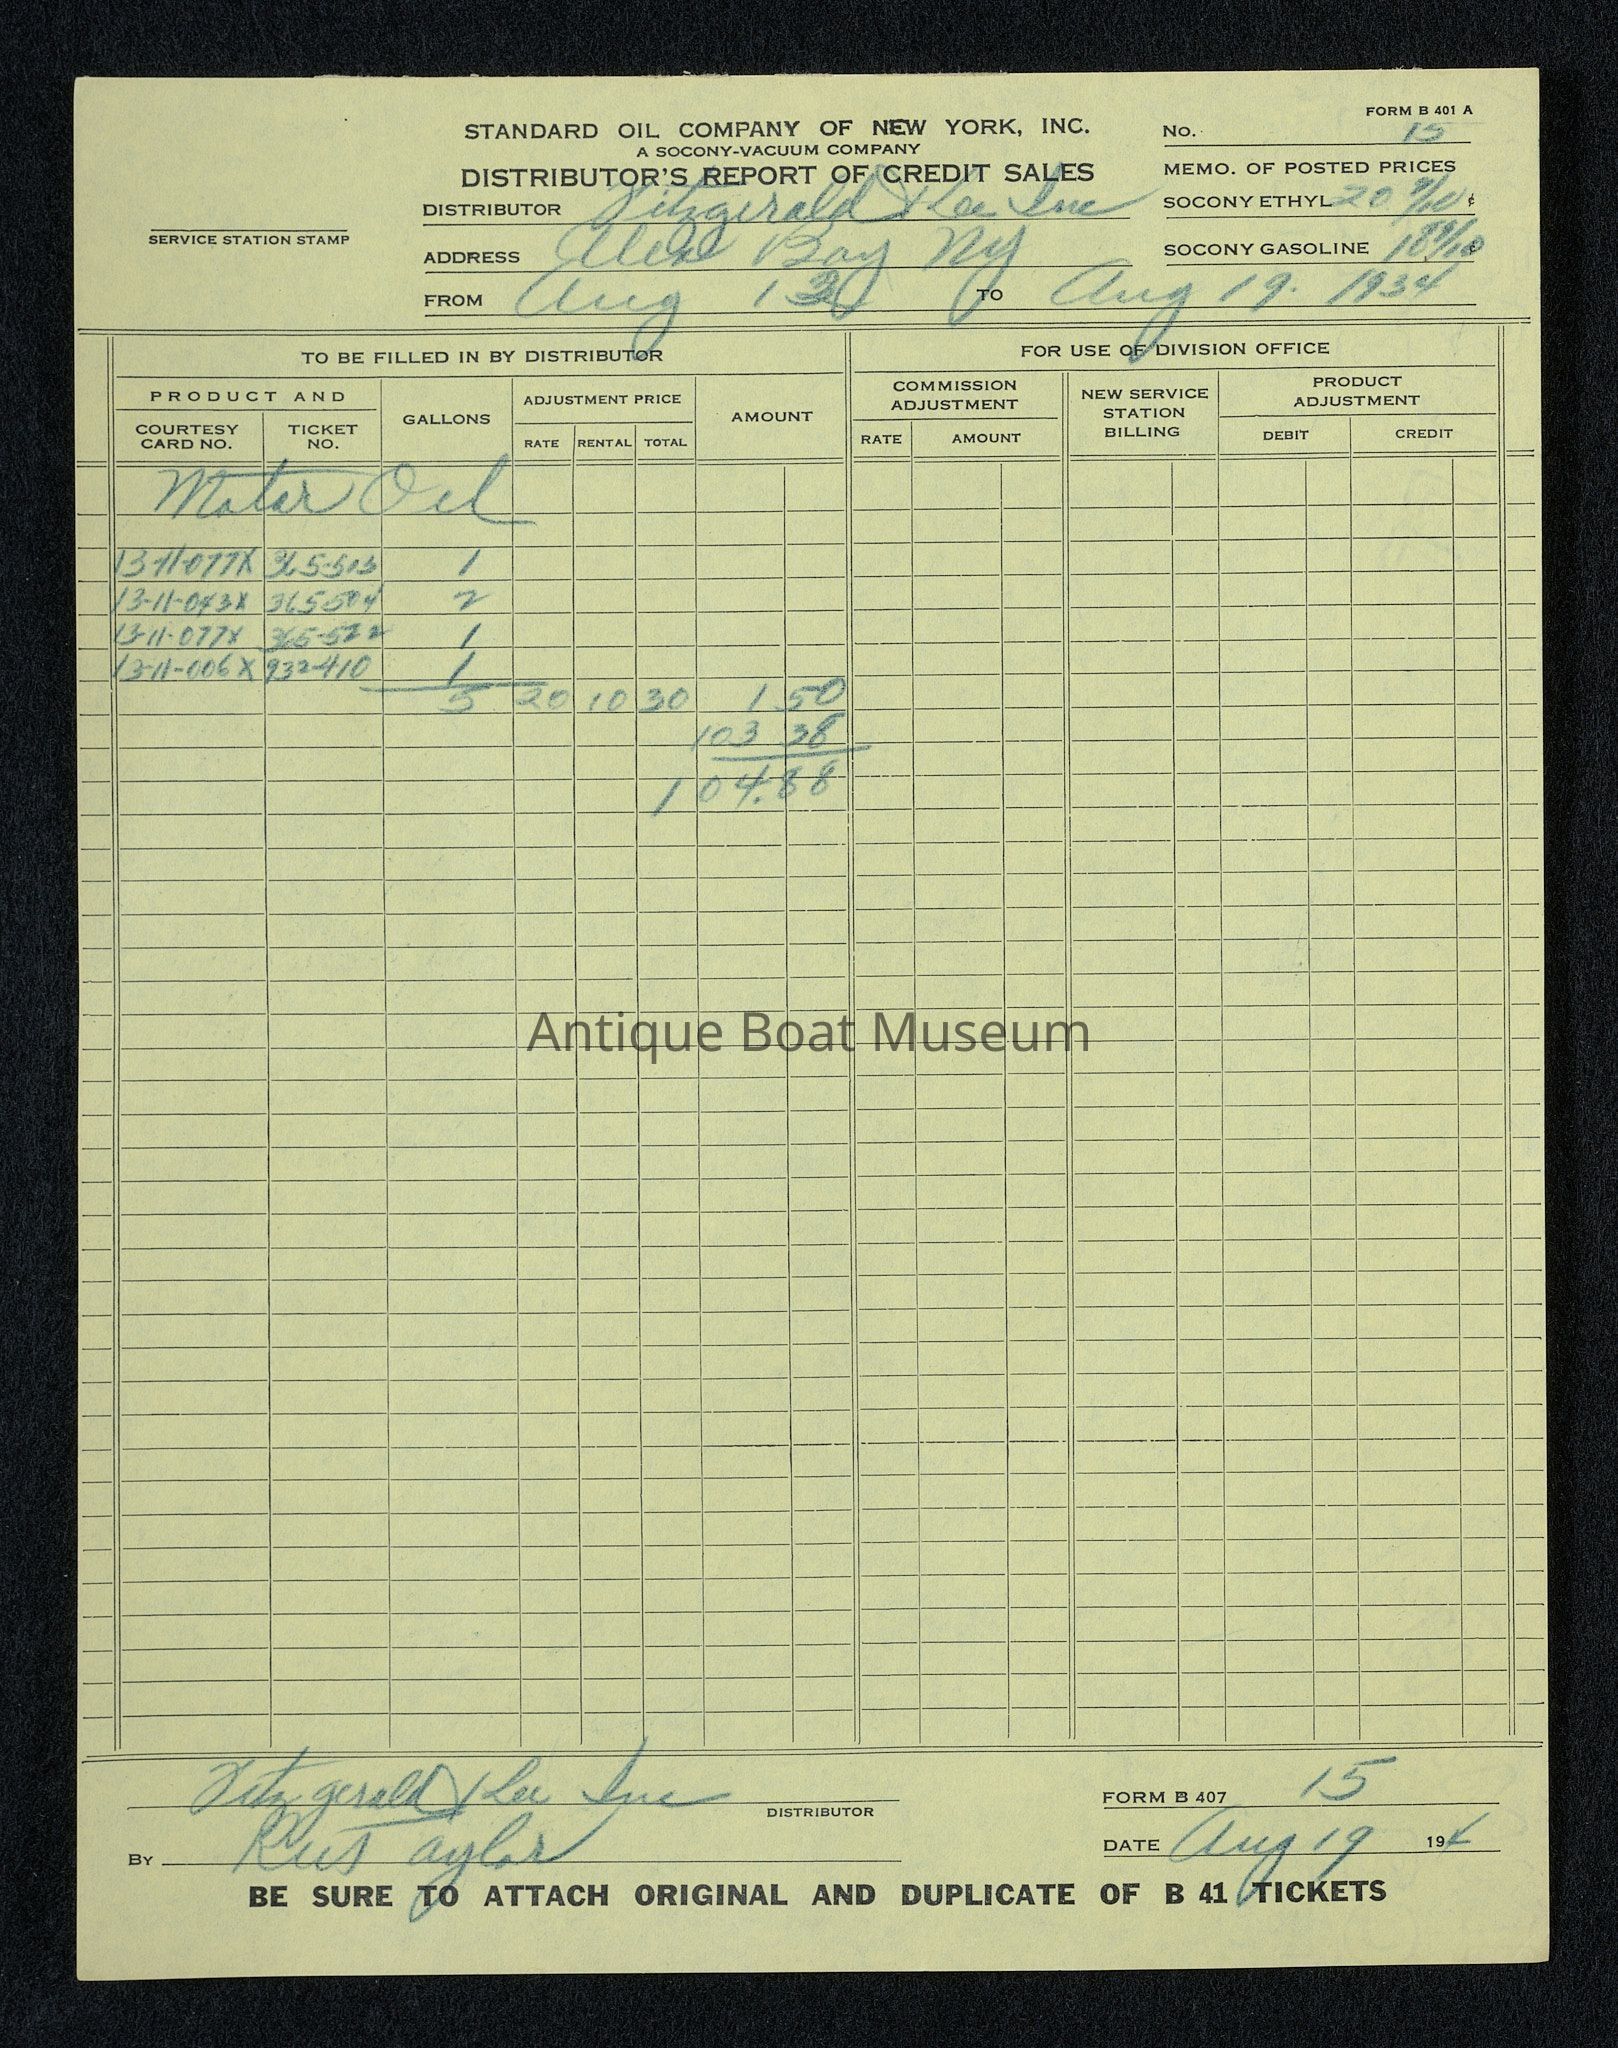 FORM B 401 A
STANDARD OIL COMPANY OF NEW YORK, INC.
No. 15
A SOCONY-VACUUM COMPANY
DISTRIBUTOR'S REPORT OF CREDIT SALES
MEMO. OF POSTED PRICES
DISTRIBUTOR Fitzgerald & Lee Inc
SOCONY ETHYL 20 9/10 ¢
SERVICE STATION STAMP
ADDRESS Alex Bay NY
SOCONY GASOLINE 18 9/10 ¢
FROM Aug 13 TO Aug 19. 1934
TO BE FILLED IN BY DISTRIBUTOR
FOR USE OF DIVISION OFFICE
PRODUCT AND
COURTESY CARD NO.
TICKET NO.
GALLONS
ADJUSTMENT PRICE
RATE RENTAL TOTAL
AMOUNT
COMMISSION ADJUSTMENT
RATE AMOUNT
NEW SERVICE STATION BILLING
PRODUCT ADJUSTMENT
DEBIT CREDIT
Motor Oil
13-11-077X 365-513 1
13-11-043X 365504 2
13-11-077X 365-522 1
13-11-006X 932-410 1
5 20 10 30 1 50
103 38
104.88
Antique Boat Museum
Fitzgerald & Lee Inc
DISTRIBUTOR
FORM B 407 15
By Rus Taylor
DATE Aug 19 194
BE SURE TO ATTACH ORIGINAL AND DUPLICATE OF B 41 TICKETS